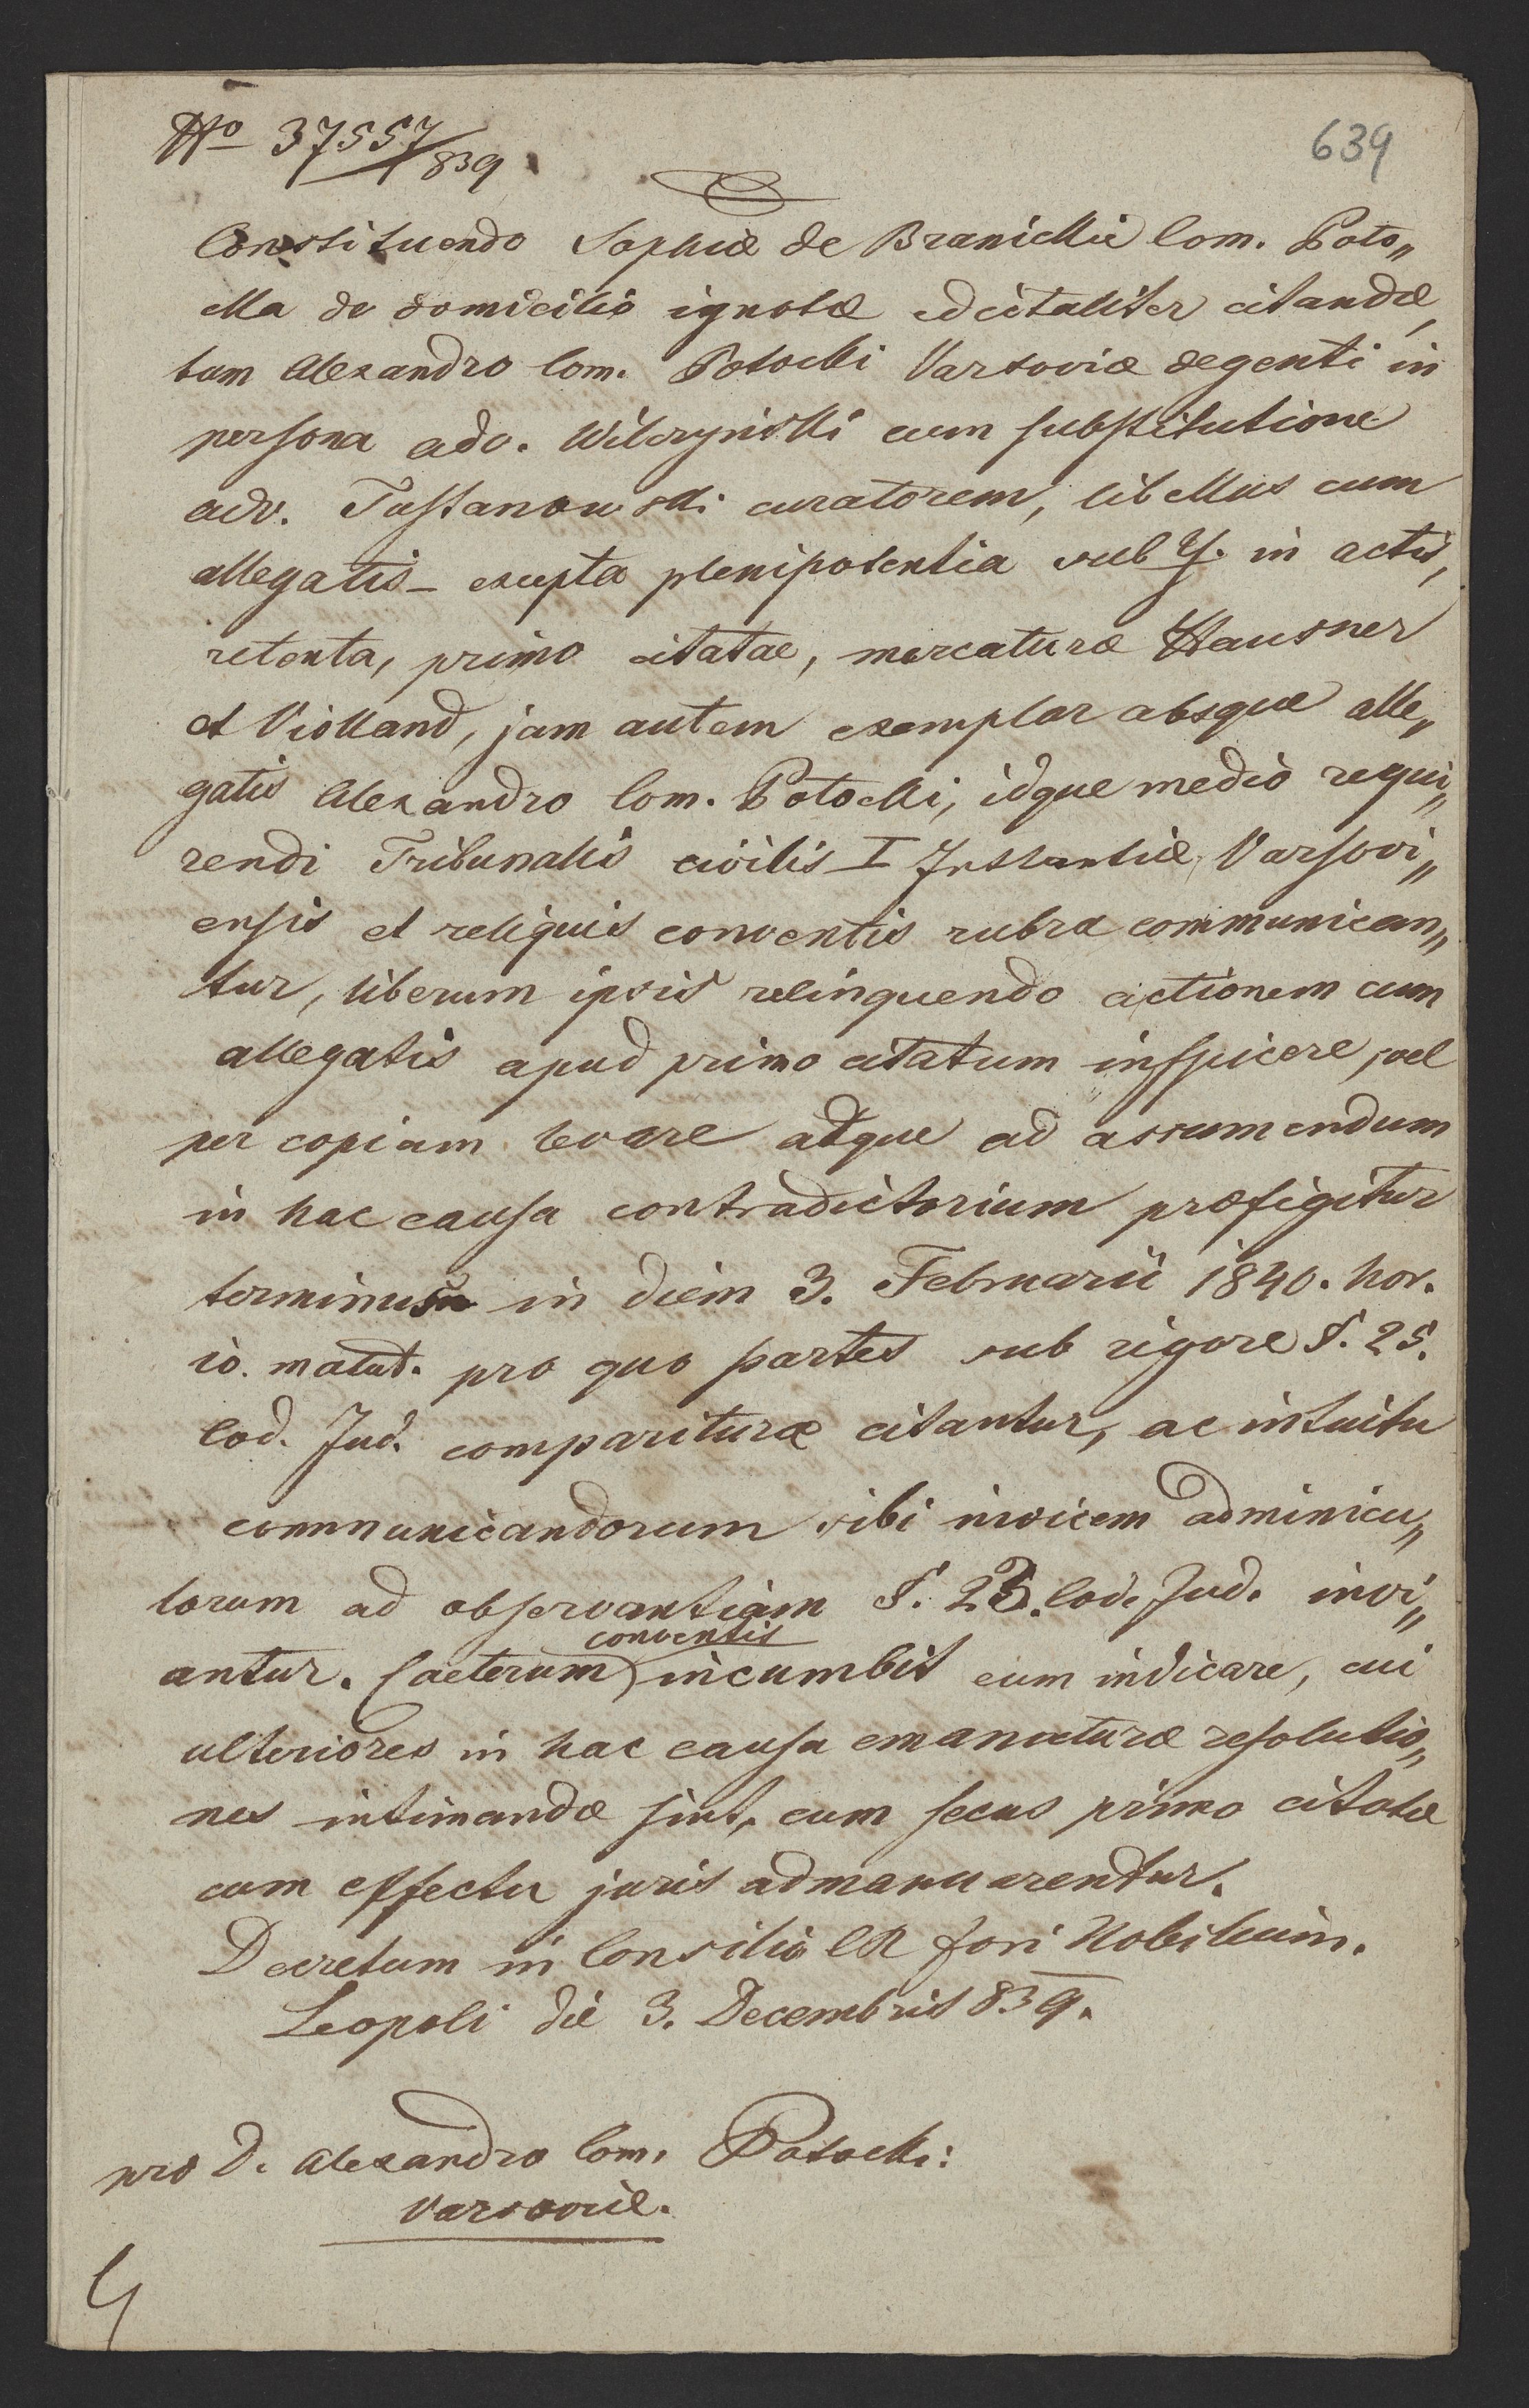 No 37557/839
639
Constituendo Sophiæ de Branickie Com. Poto„
cka de domicilio ignotæ edictaliter citandæ,
tum Alexandro Com. Potocki Varsoviæ degenti in
persona adv. Wilczyński cum substitutione
adv. Tustanowski curatorem, libellus cum
allegatis – excepta plenipotentia sub y. in actis,
retenta, primo citatae, mercaturæ Hausner
et Violland, jam autem exemplar absque alle„
gatis Alexandro Com. Potocki, idque medio requi„
rendi Tribunalis civilis I Instantiæ, Varsovi„
ensis et reliquis conventis rubra communican„
tur, liberum ipsis relinquendo actionem cum
allegatis apud primo citatum inspicere, vel
per copiam levare atque ad assumendum
in hac causa contradictorium præfigitur
terminus in diem 3. Februarii 1840. hor.
10. matut. pro quo partes sub rigore §. 25.
Cod. Jud. compariturae citantur, ac intuitu
communicandorum sibi invicem adminicu„
lorum ad observantiam §. 23. Cod. Jud. invi„
antur. Caeterum conventis incumbit eum indicare, cui
ulteriores in hac causa emanaturæ resolutio„
nes intimandæ sint, cum secus primo citatæ
cum effectu juris admanuarentur.
Decretum in Consilio CR Fori Nobilium.
Leopoli die 3. Decembris 839.
pro D. Alexandro Com. Potocki:
Varsoviæ.